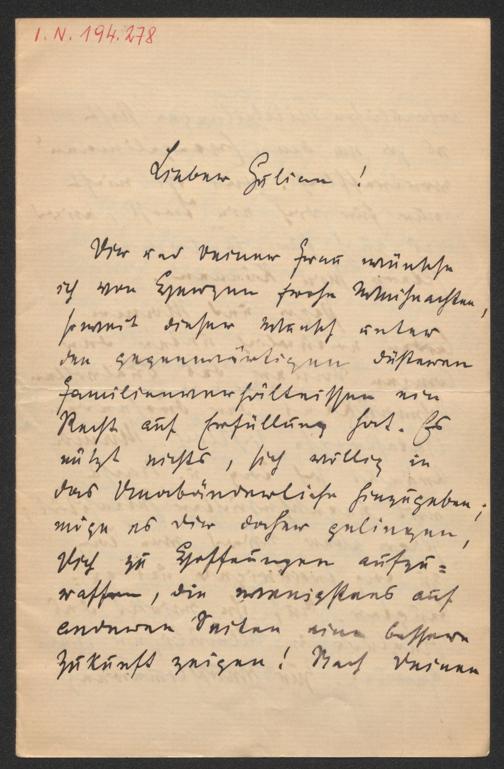 I. N. 194.278
Lieber Julian!
Dir und Deiner Frau wünsche
ich von Herzen frohe Weihnachten,
soweit dieser Wunsch unter
den gegenwärtigen düsteren
Familienverhältnissen ein
Recht auf Erfüllung hat. Es
nützt nichts, sich völlig in
das Unabänderliche hinzugeben;
möge es Dir daher gelingen,
Dich zu Hoffnungen aufzu=
raffen, die wenigstens auf
anderen Seiten eine bessere
Zukunft zeigen! Nach Deinen